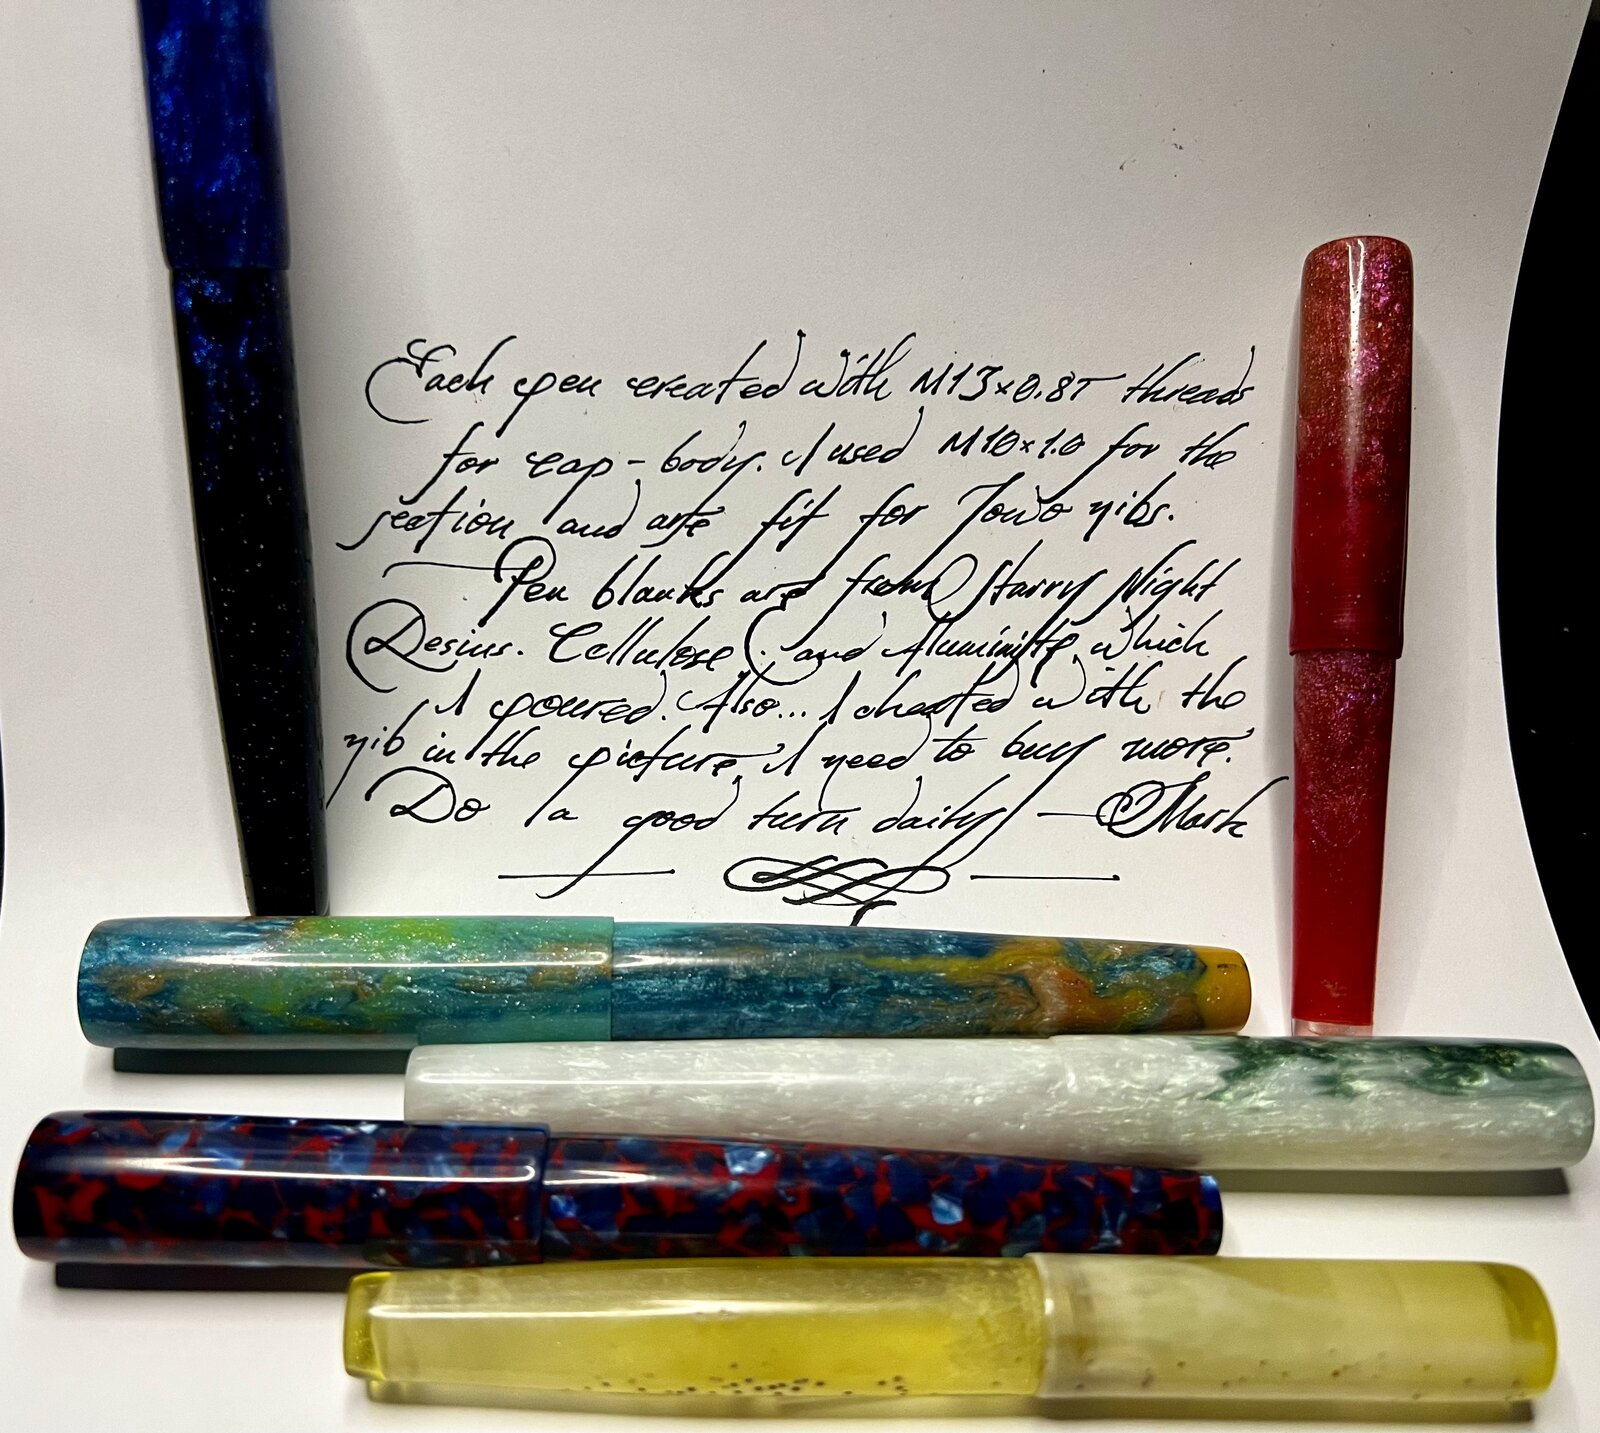 Each pen created with M13×0.8T threads
for cap-body. I used M10×1.0 for the
section and are fit for Jowo nibs.
Pen blanks are from Starry Night
Desins. Cellulose. and Aluminite which
I poured. Also... I cheated with the
nib in the picture, I need to buy more.
Do a good turn daily — Mark